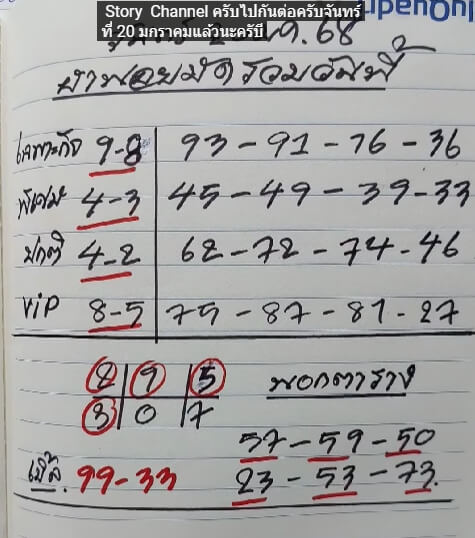 Story Channel ครับไปกันต่อครับจันทร์
ที่ 20 มกราคมแล้วนะครับปี
OpenOn
ฮานอยมัดรวมวันนี้
เฉพาะกิจ 9-8 93-91-76-36
พิเศษ 4-3 45-49-39-33
ปกติ 4-2 62-72-74-46
ViP 8-5 75-87-81-27
8 9 5
3 0 7
พอกตาราง
57-59-50
เบิ้ล. 99-33 23-53-73.